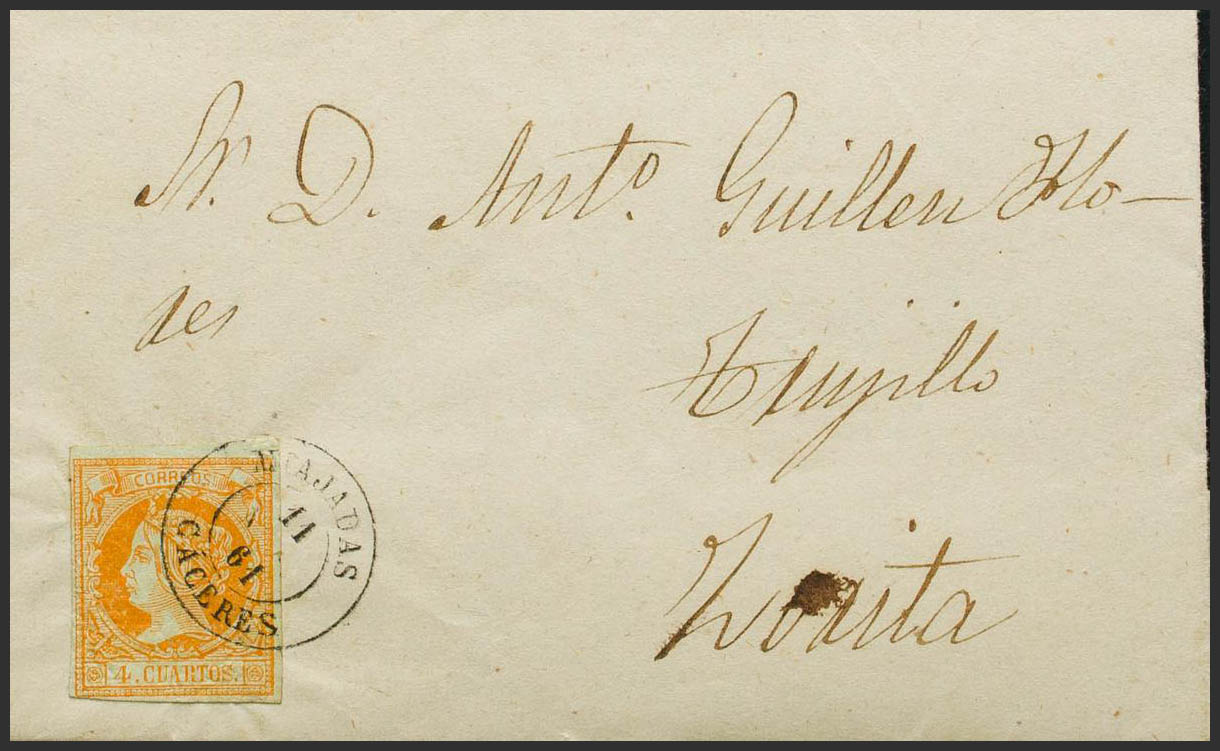 Sr. D. Anto. Guillen Flo-
res
Trujillo
Zorita
CORREOS
4. CUARTOS.
MIAJADAS
11
61
CÁCERES